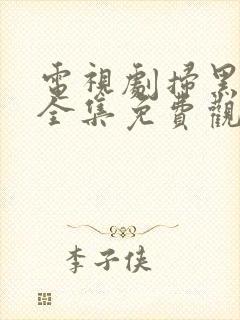 電視劇掃黑
全集免費觀
李子俠